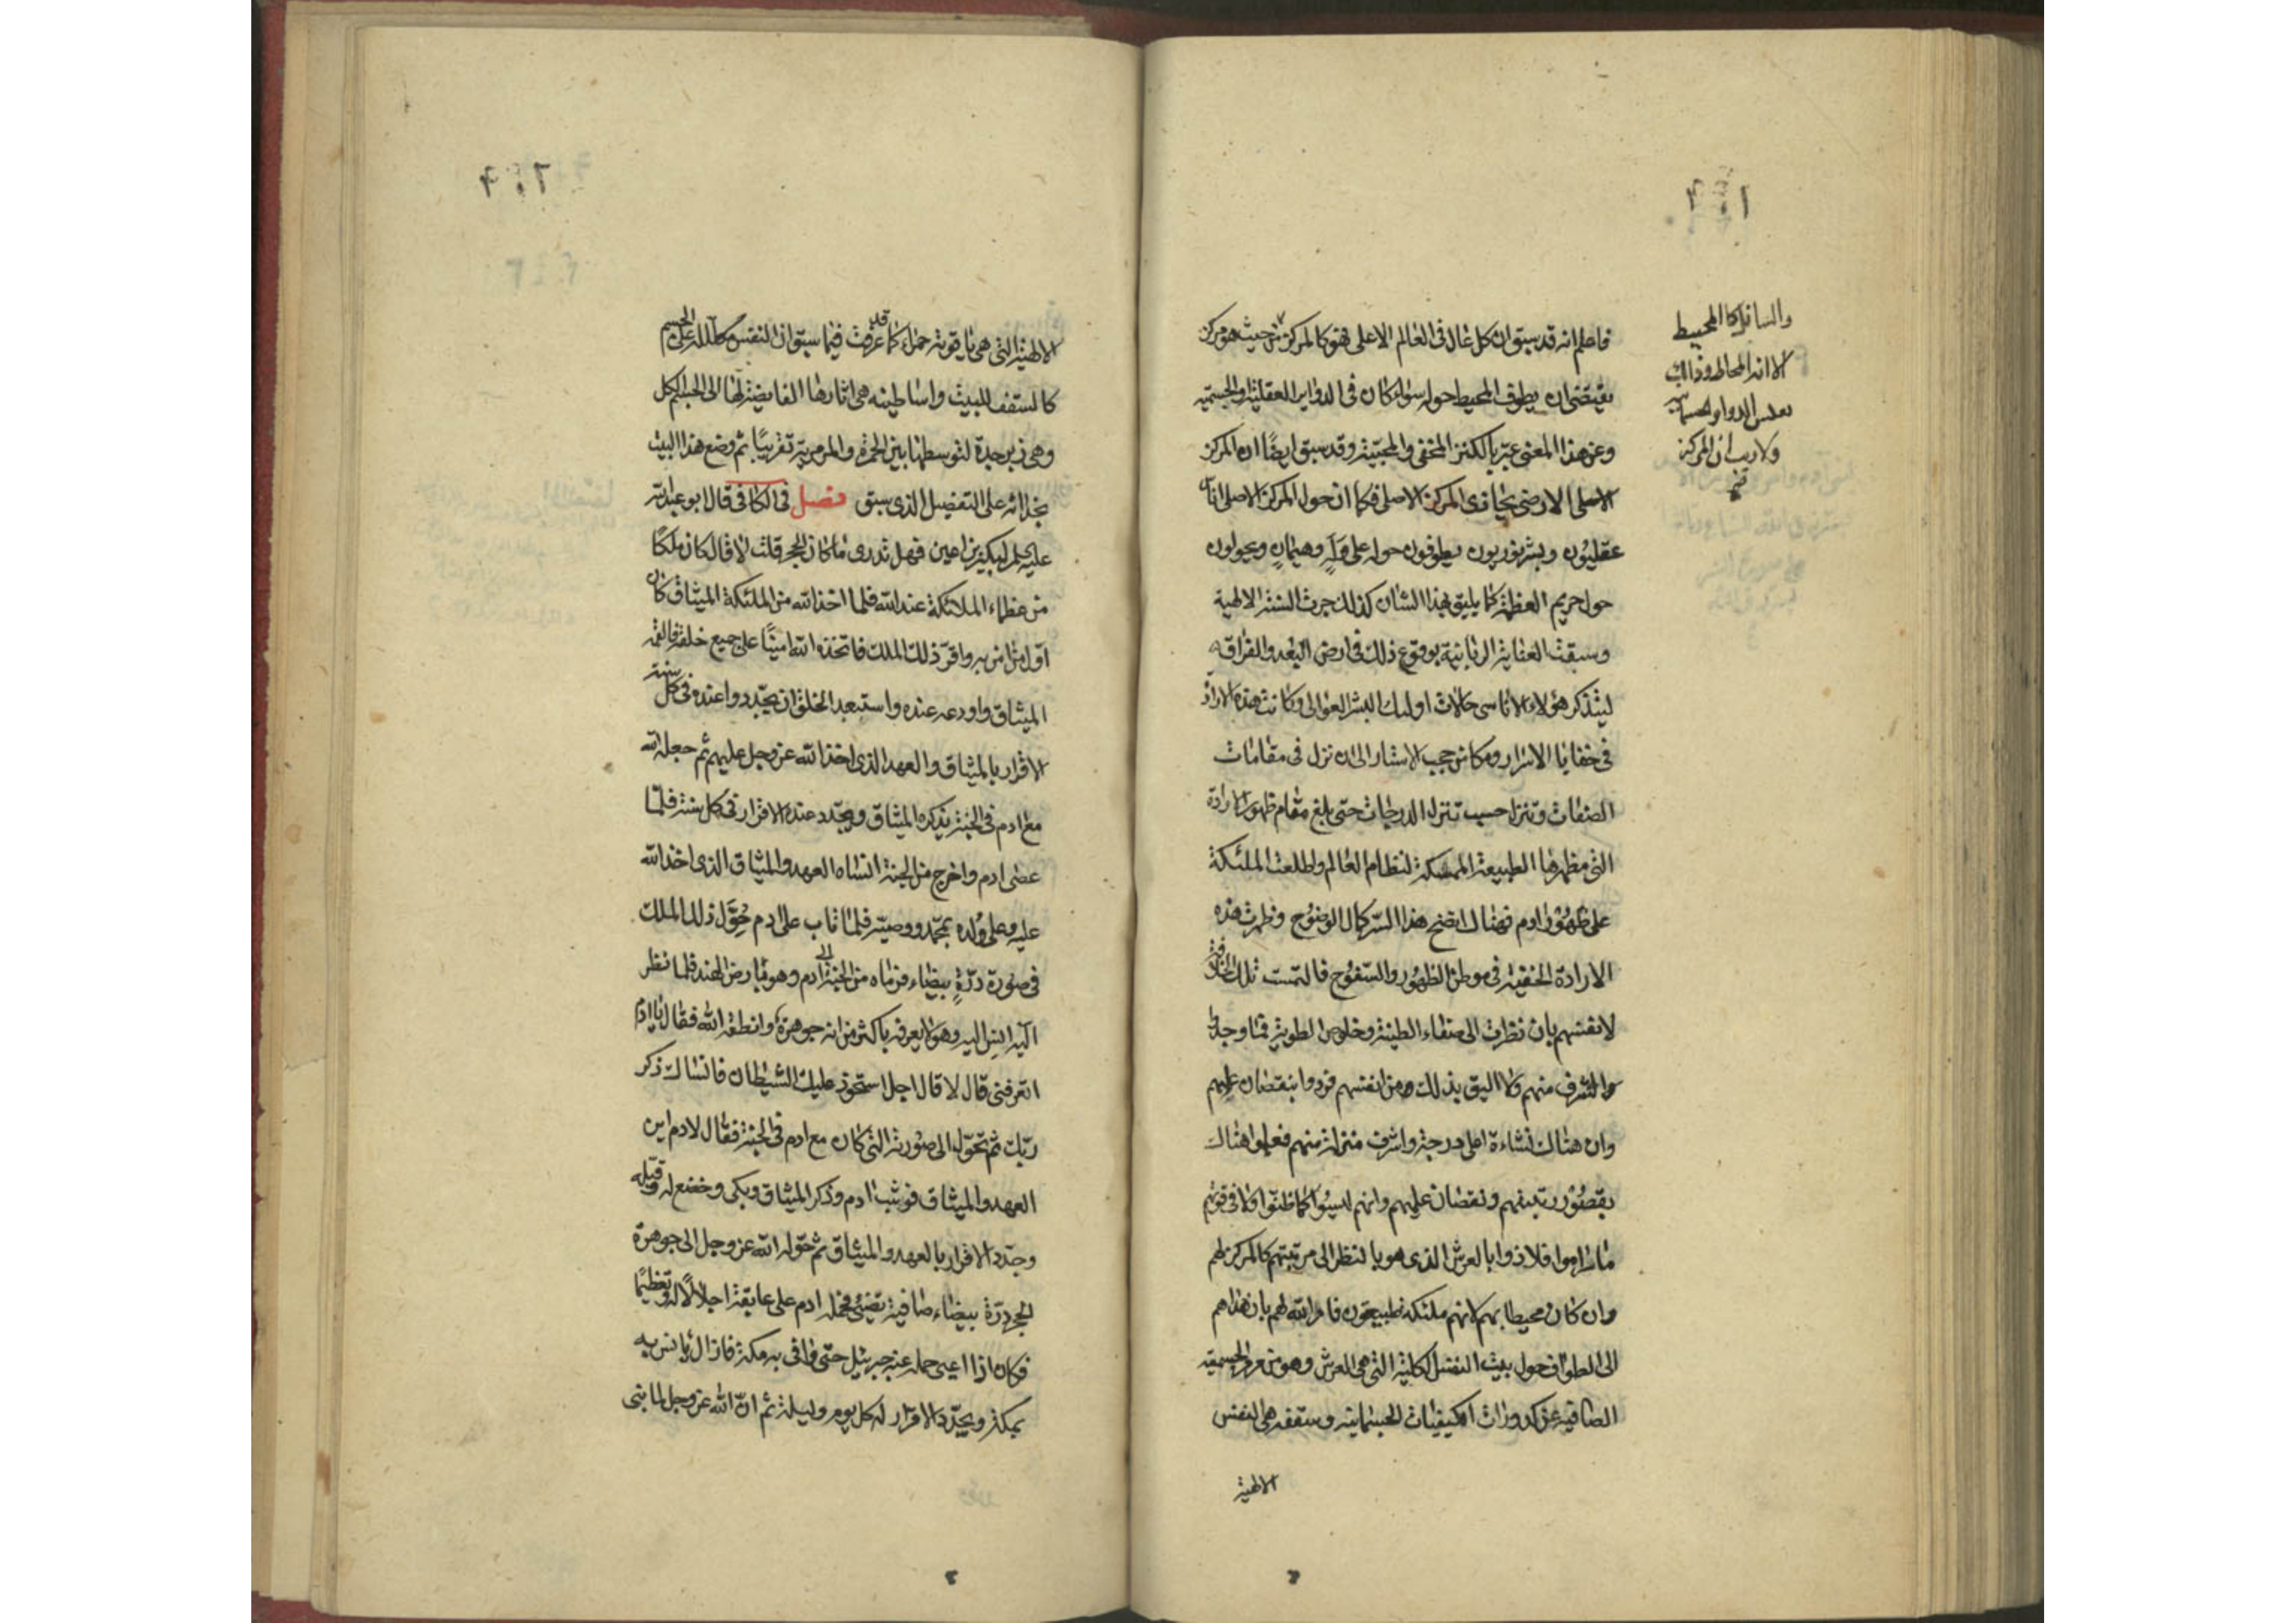 فاعلم انه قد سبق ان كل عال فى العالم الاعلى فهو كالمركز من حيث هو مركز
يقتضى ان يطوف المحيط حوله سواء كان فى الدواير العقلية والجسمية
وعن هذا المعنى عبّر بالكنز المخفى والمحبّة وقد سبق ايضًا ان المركز
الاصلى الارضى يحاذى المركز الاصلى فكما ان حول المركز الاصلى اناس
عقليّون وبشر نوريون يطوفون حوله على وَلَهٍ وهيمانٍ ويجولون
حول حريم العظمة كما يليق بهذا الشان كذلك جرت السنة الالهية
وسبقت العناية الربانية بوقوع ذلك فى ارض البُعد والفراق
ليتذكر هؤلاء الاناسى حالات اوليك البشر العوالى وكانت هذه الارادة
فى خفايا الاسرار ومكامن حجب الاستار الى ان نزل فى مقامات
الصفات وتنزل حسب تنزل الدرجات حتى بلغ مقام ظهور الارادة
التى مظهرها الطبيعة الممسكة لنظام العالم ولطلعت الملئكة
على ظهور ادم فهناك اتضح هذا السّر كمال الوضوح وظهرت هذه
الارادة الخفية فى موطن الظهور والسّفوح فالتمست تلك الخلافة
لانفسهم بان نظرت الى صفاء الطينة وخلوص الطوية فما وجدوا
والتشرف منهم ولا اليق بذلك من انفسهم فردوا بنقصان علمهم
وان هناك نشاءة اعلى درجة واشرف منزلة منهم فعلموا هناك
بقصُور رتبتهم ونقصان علمهم وانهم ليسُوا كما ظنّوا ولا فى قوتهم
ما راموا فلاذوا بالعرش الذى هو بالنظر الى مرتبتهم كالمركز لهم
وان كان محيطا بهم لانهم ملئكة طبيعيّون فامر الله لهم بان هداهم
الى الطواف حول بيت النفس الكلية التى هى العرش وهو من مرمر الجسمية
الصافية عن كدورات الكيفيات الجسمانية وسقفه هى النفس
الالهية
والسافل كالمحيط
الا انه المحاط وذلك
بعكس الدواير الحسمانية
ولا ريب ان المركز
الالهية التى هى ياقوتة حمراء كما قد عرفت فيما سبق ان النفس كالمظلة على الجسم
كالسقف للبيت واساطينه هى اثارها الفايضة لها الى الجسم الكل
وهى زبرجدة لتوسطها بين الحمرة والمرمرية تقريبًا ثم وضع هذا البيت
بحذائه على التفصيل الذى سبق فصل فى الكافى قال ابو عبد الله
عليه السلم لبكير بن اعين فهل تدرى ما كان الحجر قلت لا قال كان ملكًا
من عظماء الملائكة عند الله فلما اخذ الله من الملئكة الميثاق كان
اوّل من امن به واقرّ ذلك الملك فاتخذه الله امينًا على جميع خلقه فالقمه
الميثاق واودعه عنده واستعبد الخلق ان يجدّدوا عنده فى كل سنة
الاقرار بالميثاق والعهد الذى اخذ الله عز وجل عليهم ثم جعله الله
مع ادم فى الجنة يذكره الميثاق ويجدّد عنده الاقرار فى كل سنة فلمّا
عصى ادم واخرج من الجنة انساه العهد والميثاق الذى اخذ الله
عليه وعلى ولده بمحمّد ووصيّه فلما تاب على ادم حُوِّل ذلك الملك
فى صورة درّةٍ بيضاء فرماه من الجنة الى ادم وهو بارض الهند فلما نظر
اليه انس اليه وهو لا يعرفه باكثر من انه جوهرة وانطقه الله فقال يا ادم
اتعرفنى قال لا قال اجل استحوذ عليك الشيطان فانساك ذكر
ربّك ثم تحوّل الى صورته التى كان مع ادم فى الجنة فقال لادم اين
العهد والميثاق فوثب ادم وذكر الميثاق وبكى وخضع له وقبّله
وجدّد الاقرار بالعهد والميثاق ثم حوّله الله عز وجل الى جوهرة
الحجر درّة بيضاء صافية تضئ فحمله ادم على عاتقه اجلالًا له وتعظيمًا
فكان اذا اعيى حمله عنه جبرئيل حتى وافى به مكة فما زال يانس به
بمكة ويجدّد الاقرار له كل يوم وليلة ثم انّ الله عز وجل لما بنى